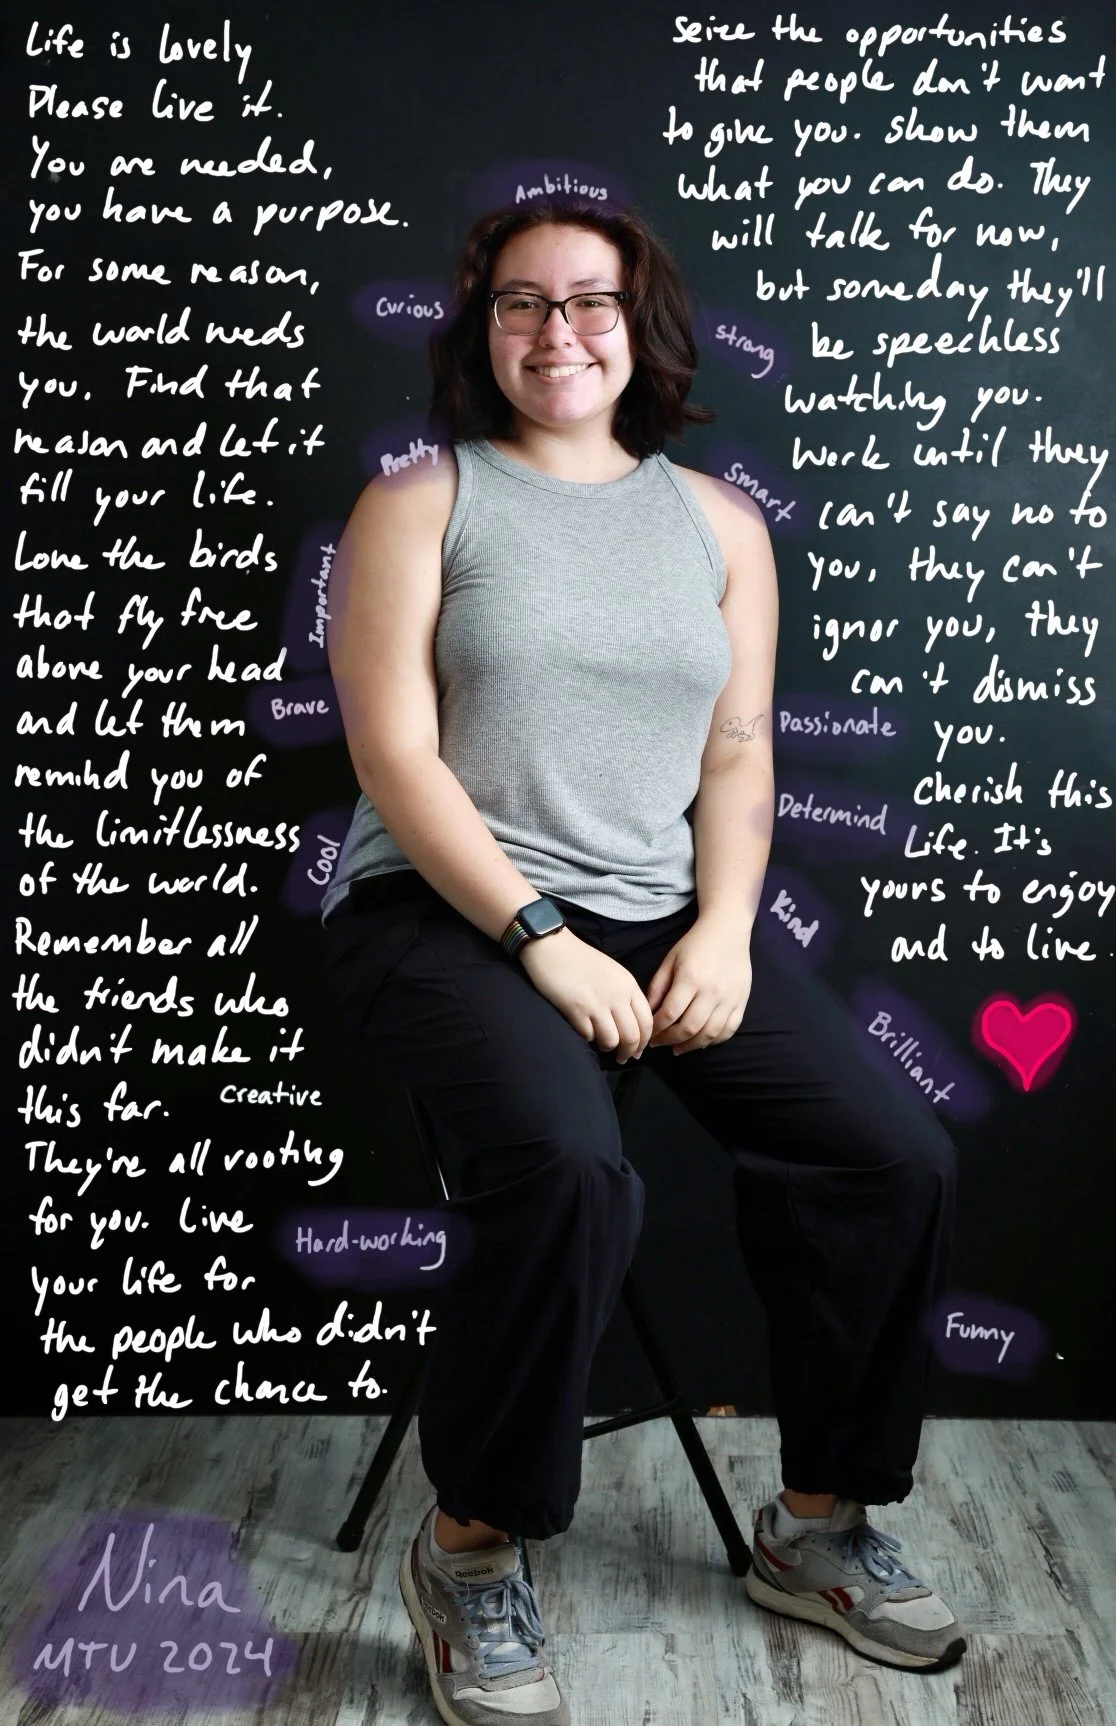 Life is lovely
Please live it.
You are needed,
you have a purpose.
For some reason,
the world needs
you. Find that
reason and let it
fill your life.
Love the birds
that fly free
above your head
and let them
remind you of
the limitlessness
of the world.
Remember all
the friends who
didn't make it
this far.
They're all rooting
for you. Live
your life for
the people who didn't
get the chance to.
seize the opportunities
that people don't want
to give you. show them
what you can do. They
will talk for now,
but someday they'll
be speechless
watching you.
Work until they
can't say no to
you, they can't
ignor you, they
can't dismiss
you.
cherish this
Life. It's
yours to enjoy
and to live.
Ambitious
Curious
strong
Pretty
Smart
Important
Brave
Passionate
Determind
Cool
Kind
Brilliant
Creative
Hard-working
Funny
Reebok
Reebok
Nina
MTU 2024